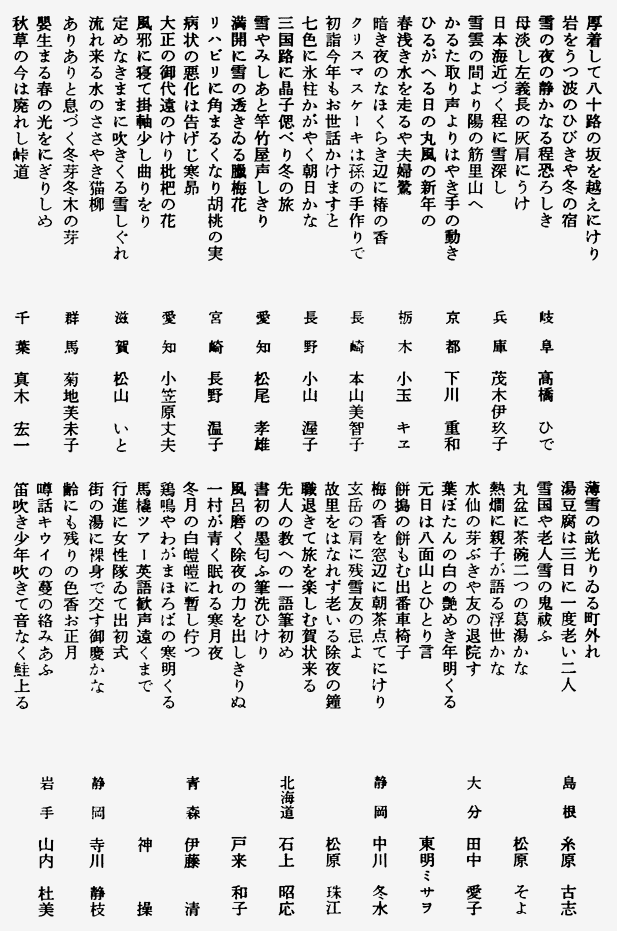 厚着して八十路の坂を越えにけり
岩をうつ波のひびきや冬の宿
雪の夜の静かなる程恐ろしき　岐阜　高橋　ひで
母淡し左義長の灰肩にうけ
日本海近づく程に雪深し　兵庫　茂木伊玖子
雪雲の間より陽の筋里山へ
かるた取り声よりはやき手の動き　京都　下川　重和
ひるがへる日の丸風の新年の
春浅き水を走るや夫婦鴛　栃木　小玉　キヱ
暗き夜のなほくらき辺に椿の香
クリスマスケーキは孫の手作りで　長崎　本山美智子
初詣今年もお世話かけますと
七色に氷柱かがやく朝日かな　長野　小山　渥子
三国路に晶子偲べり冬の旅
雪やみしあと竿竹屋声しきり　愛知　松尾　孝雄
満開に雪の透きゐる臘梅花
リハビリに角まるくなり胡桃の実　宮崎　長野　温子
病状の悪化は告げじ寒昴
大正の御代遠のけり枇杷の花　愛知　小笠原丈夫
風邪に寝て掛軸少し曲りをり
定めなきままに吹きくる雪しぐれ　滋賀　松山　いと
流れ来る水のささやき猫柳
ありありと息づく冬芽冬木の芽　群馬　菊地芙未子
嬰生まる春の光をにぎりしめ
秋草の今は廃れし峠道　千葉　真木　宏一
薄雪の畝光りゐる町外れ
湯豆腐は三日に一度老い二人　島根　糸原　古志
雪国や老人雪の鬼祓ふ
丸盆に茶碗二つの葛湯かな　松原　そよ
熱燗に親子が語る浮世かな
水仙の芽ぶきや友の退院す　大分　田中　愛子
葉ぼたんの白の艶めき年明くる
元日は八面山とひとり言　東明ミサヲ
餅搗の餅もむ出番車椅子
梅の香を窓辺に朝茶点てにけり　静岡　中川　冬水
玄岳の肩に残雪友の忌よ
故里をはなれず老いる除夜の鐘　松原　珠江
職退きて旅を楽しむ賀状来る
先人の教への一語筆初め　北海道　石上　昭応
書初の墨匂ふ筆洗ひけり
風呂磨く除夜の力を出しきりぬ　戸来　和子
一村が青く眠れる寒月夜
冬月の白皚皚に暫し佇つ　青森　伊藤　清
鶏鳴やわがまほろばの寒明くる
馬橇ツアー英語歓声遠くまで　神　操
行進に女性隊ゐて出初式
街の湯に裸身で交す御慶かな　静岡　寺川　静枝
齢にも残りの色香お正月
噂話キウイの蔓の絡みあふ　岩手　山内　杜美
笛吹き少年吹きて音なく鮭上る